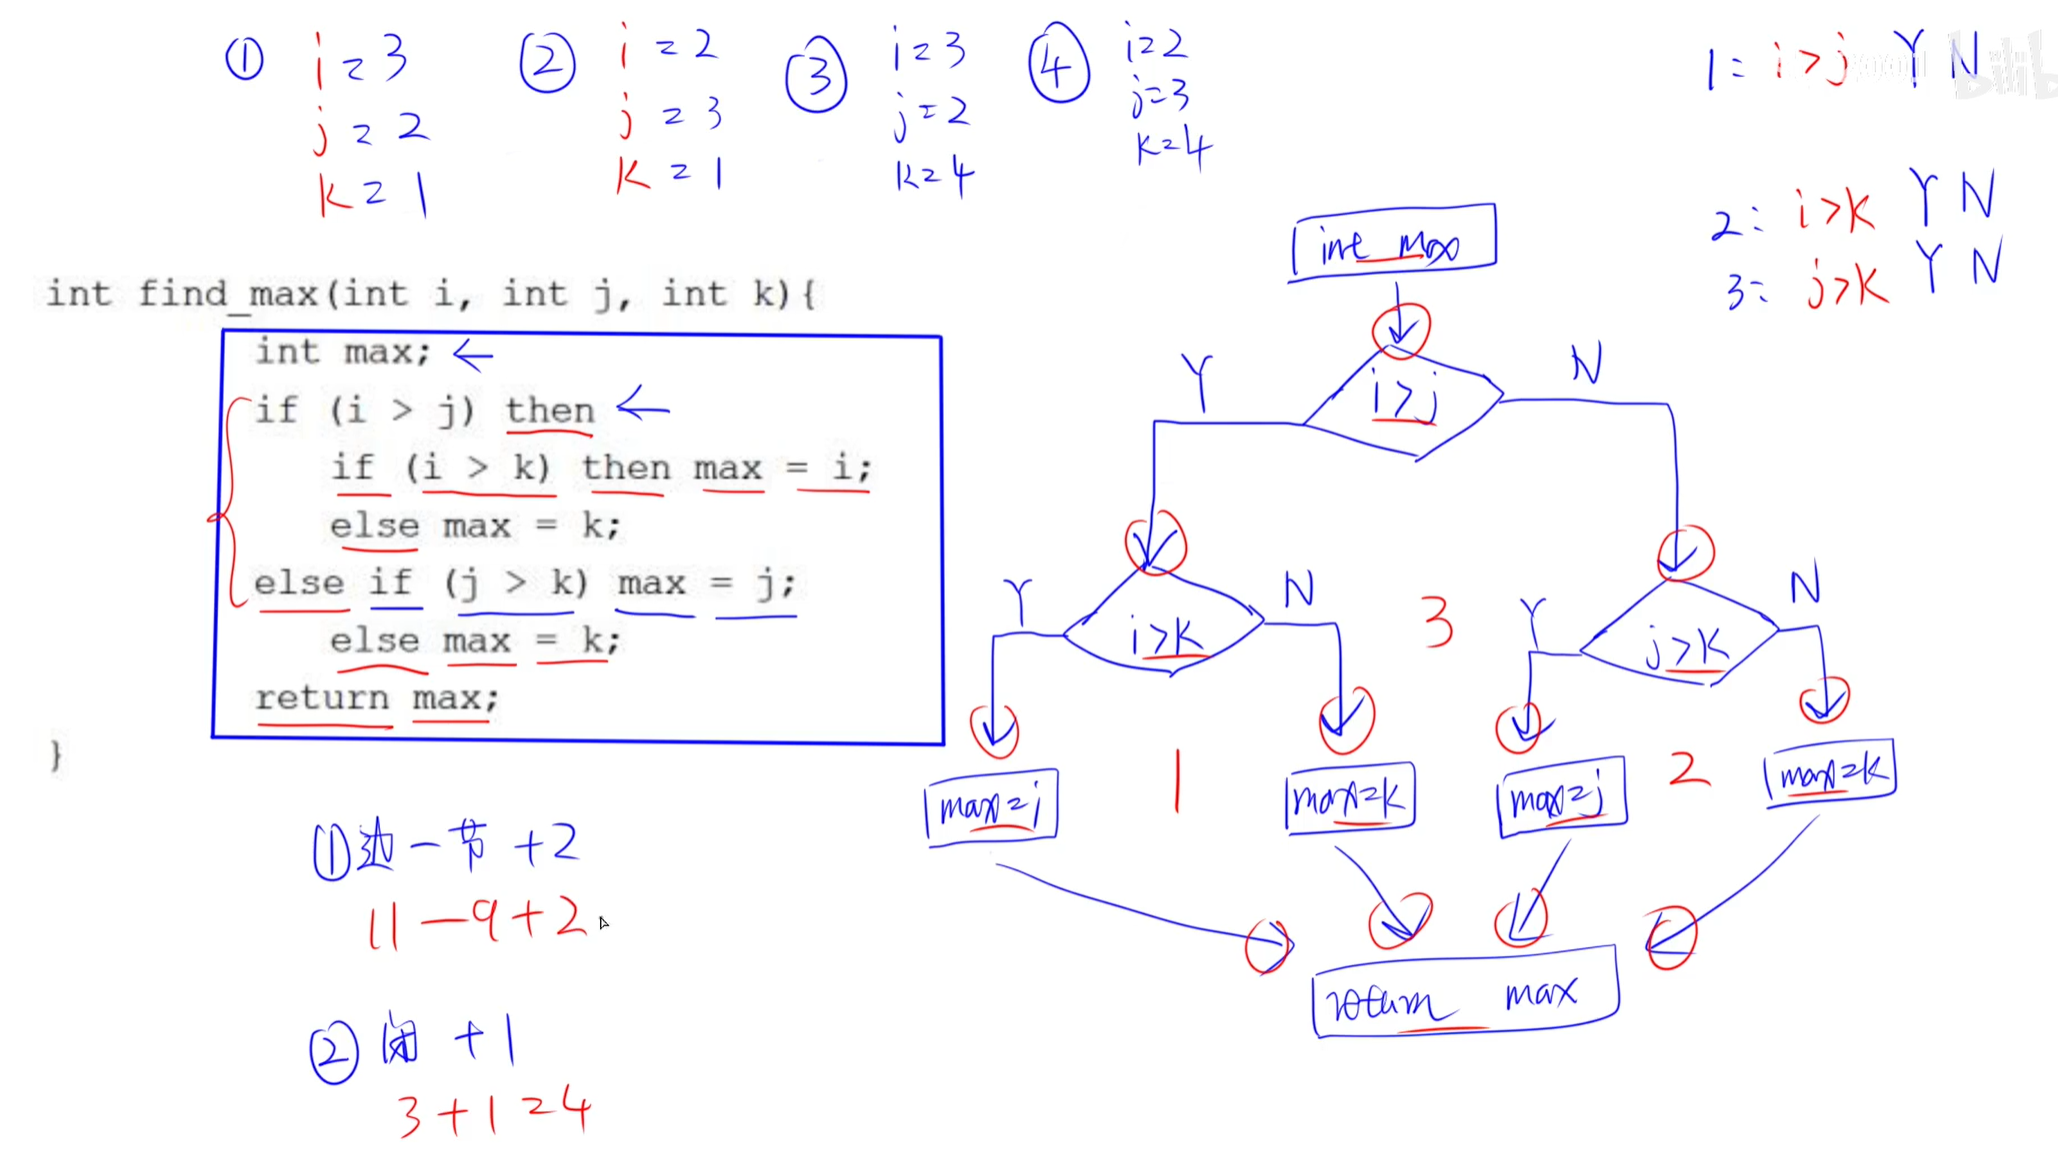 ① i=3
j=2
k=1
② i=2
j=3
k=1
③ i=3
j=2
k=4
④ i=2
j=3
k=4
1: i>j Y N
2: i>k Y N
3: j>k Y N
int find_max(int i, int j, int k){
int max; ←
if (i > j) then ←
if (i > k) then max = i;
else max = k;
else if (j > k) max = j;
else max = k;
return max;
}
①边-节+2
11-9+2
②闭+1
3+1=4
int max
Y i>j N
Y i>k N
3
Y j>k N
max=i
1
max=k
max=j
2
max=k
return max